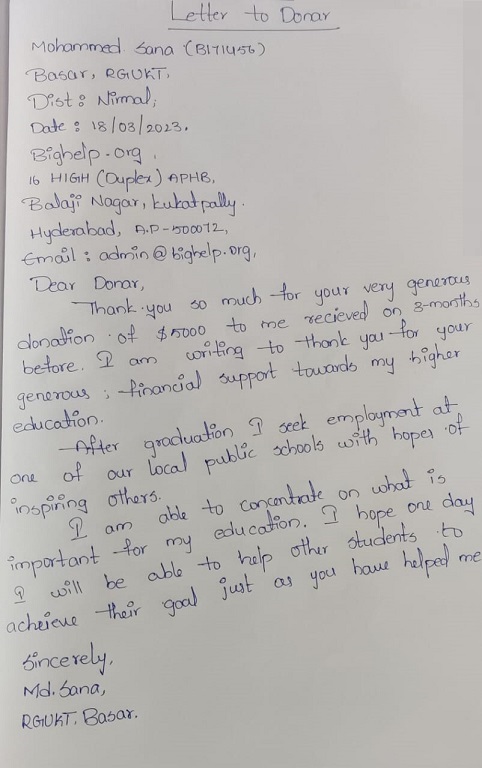 Letter to Donar
Mohammed Sana (B171456)
Basar, RGUKT,
Dist : Nirmal,
Date : 18/03/2023.
Bighelp.org,
16 HIGH (Duplex) APHB,
Balaji Nagar, kukatpally.
Hyderabad, A.P-500072,
Email : admin@bighelp.org,
Dear Donar,
Thank you so much for your very generous
donation of $5000 to me recieved on 3-months
before. I am writing to thank you for your
generous ; financial support towards my higher
education.
After graduation I seek employment at
one of our local public schools with hopes of
inspiring others.
I am able to concentrate on what is
important for my education. I hope one day
I will be able to help other students to
acheieve their goal just as you have helped me
Sincerely,
Md. Sana,
RGUKT. Basar.